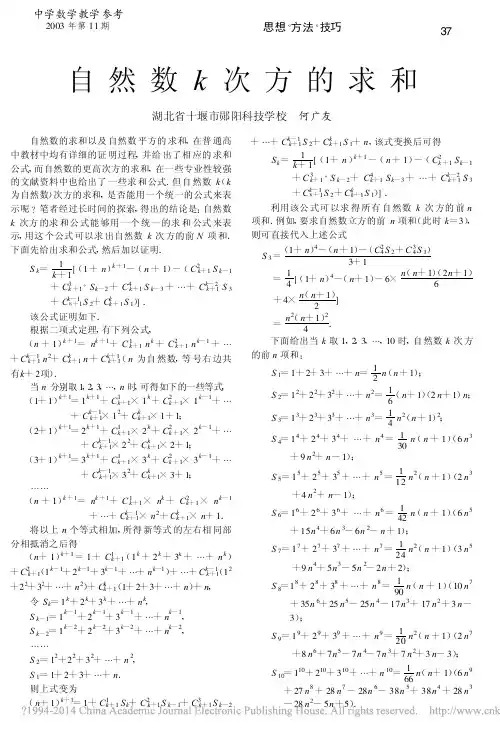 中学数学教学参考
2003 年第 11 期
思想·方法·技巧
37
自 然 数 k 次 方 的 求 和
湖北省十堰市郧阳科技学校 何广友
自然数的求和以及自然数平方的求和, 在普通高
中教材中均有详细的证明过程, 并给出了相应的求和
公式, 而自然数的更高次方的求和, 在一些专业性较强
的文献资料中也给出了一些求和公式. 但自然数 k (k
为自然数)次方的求和, 是否能用一个统一的公式来表
示呢? 笔者经过长时间的探索, 得出的结论是: 自然数
k 次方的求和公式能够用一个统一的求和公式来表
示, 用这个公式可以求出自然数 k 次方的前 N 项和.
下面先给出求和公式, 然后加以证明.
S_k = 1/(k+1) [(1+n)^{k+1} − (n+1) − (C_{k+1}^2 S_{k−1}
+ C_{k+1}^3 · S_{k−2} + C_{k+1}^4 S_{k−3} + ⋯ + C_{k+1}^{k−2} S_3
+ C_{k+1}^{k−1} S_2 + C_{k+1}^k S_1)] .
该公式证明如下.
根据二项式定理, 有下列公式,
(n+1)^{k+1} = n^{k+1} + C_{k+1}^1 n^k + C_{k+1}^2 n^{k−1} + ⋯
+ C_{k+1}^{k−1} n^2 + C_{k+1}^k n + C_{k+1}^{k+1} (n 为自然数, 等号右边共
有k+2项).
当 n 分别取 1, 2, 3, ⋯, n 时, 可得如下的一些等式,
(1+1)^{k+1} = 1^{k+1} + C_{k+1}^1 × 1^k + C_{k+1}^2 × 1^{k−1} + ⋯
+ C_{k+1}^{k−1} × 1^2 + C_{k+1}^k × 1 + 1;
(2+1)^{k+1} = 2^{k+1} + C_{k+1}^1 × 2^k + C_{k+1}^2 × 2^{k−1} + ⋯
+ C_{k+1}^{k−1} × 2^2 + C_{k+1}^k × 2 + 1;
(3+1)^{k+1} = 3^{k+1} + C_{k+1}^1 × 3^k + C_{k+1}^2 × 3^{k−1} + ⋯
+ C_{k+1}^{k−1} × 3^2 + C_{k+1}^k × 3 + 1;
⋯⋯
(n+1)^{k+1} = n^{k+1} + C_{k+1}^1 × n^k + C_{k+1}^2 × n^{k−1}
+ ⋯ + C_{k+1}^{k−1} × n^2 + C_{k+1}^k × n + 1.
将以上 n 个等式相加, 所得新等式的左右相同部
分相抵消之后得
(n+1)^{k+1} = 1 + C_{k+1}^1 (1^k + 2^k + 3^k + ⋯ + n^k)
+ C_{k+1}^2 (1^{k−1} + 2^{k−1} + 3^{k−1} + ⋯ + n^{k−1}) + ⋯ + C_{k+1}^{k−1} (1^2
+ 2^2 + 3^2 + ⋯ + n^2) + C_{k+1}^k (1+2+3+ ⋯ +n) + n,
令 S_k = 1^k + 2^k + 3^k + ⋯ + n^k,
S_{k−1} = 1^{k−1} + 2^{k−1} + 3^{k−1} + ⋯ + n^{k−1},
S_{k−2} = 1^{k−2} + 2^{k−2} + 3^{k−2} + ⋯ + n^{k−2},
⋯⋯
S_2 = 1^2 + 2^2 + 3^2 + ⋯ + n^2,
S_1 = 1 + 2 + 3 + ⋯ + n.
则上式变为
(n+1)^{k+1} = 1 + C_{k+1}^1 S_k + C_{k+1}^2 S_{k−1} + C_{k+1}^3 S_{k−2}
+ ⋯ + C_{k+1}^{k−1} S_2 + C_{k+1}^k S_1 + n, 该式变换后可得
S_k = 1/(k+1) [(1+n)^{k+1} − (n+1) − (C_{k+1}^2 S_{k−1}
+ C_{k+1}^3 · S_{k−2} + C_{k+1}^4 S_{k−3} + ⋯ + C_{k+1}^{k−2} S_3
+ C_{k+1}^{k−1} S_2 + C_{k+1}^k S_1)] .
利用该公式可以求得所有自然数 k 次方的前 n
项和. 例如, 要求自然数立方的前 n 项和(此时 k=3),
则可直接代入上述公式
S_3 = ((1+n)^4 − (n+1) − (C_4^2 S_2 + C_4^3 S_1))/(3+1)
= 1/4 [(1+n)^4 − (n+1) − 6× n(n+1)(2n+1)/6
+ 4× n(n+1)/2]
= n^2(n+1)^2/4.
下面给出当 k 取 1, 2, 3, ⋯, 10 时, 自然数 k 次方
的前 n 项和:
S_1 = 1+2+3+ ⋯ +n = 1/2 n(n+1);
S_2 = 1^2+2^2+3^2+ ⋯ +n^2 = 1/6 (n+1)(2n+1)n;
S_3 = 1^3+2^3+3^3+ ⋯ +n^3 = 1/4 n^2(n+1)^2;
S_4 = 1^4+2^4+3^4+ ⋯ +n^4 = 1/30 n(n+1)(6n^3
+9n^2+n−1);
S_5 = 1^5+2^5+3^5+ ⋯ +n^5 = 1/12 n^2(n+1)(2n^3
+4n^2+n−1);
S_6 = 1^6+2^6+3^6+ ⋯ +n^6 = 1/42 n(n+1)(6n^5
+15n^4+6n^3−6n^2−n+1);
S_7 = 1^7+2^7+3^7+ ⋯ +n^7 = 1/24 n^2(n+1)(3n^5
+9n^4+5n^3−5n^2−2n+2);
S_8 = 1^8+2^8+3^8+ ⋯ +n^8 = 1/90 n(n+1)(10n^7
+35n^6+25n^5−25n^4−17n^3+17n^2+3n−
3);
S_9 = 1^9+2^9+3^9+ ⋯ +n^9 = 1/20 n^2(n+1)(2n^7
+8n^6+7n^5−7n^4−7n^3+7n^2+3n−3);
S_10 = 1^10+2^10+3^10+ ⋯ +n^10 = 1/66 n(n+1)(6n^9
+27n^8+28n^7−28n^6−38n^5+38n^4+28n^3
−28n^2−5n+5).
?1994-2014 China Academic Journal Electronic Publishing House. All rights reserved. http://www.cnk